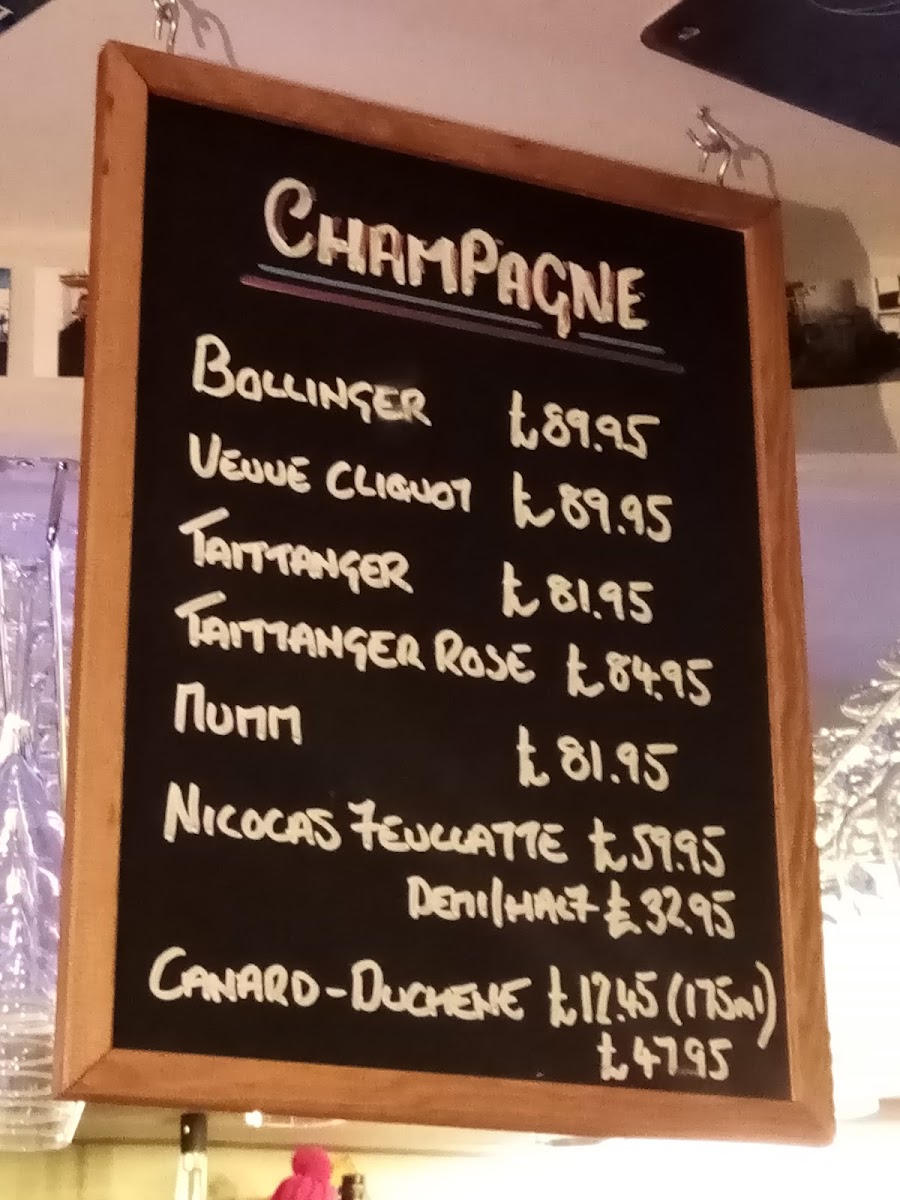 CHAMPAGNE
BOLLINGER £89.95
VEUVE CLIQUOT £89.95
TAITTANGER £81.95
TAITTANGER ROSE £84.95
MUMM £81.95
NICOLAS FEULLATTE £59.95
DEMI/HALF £32.95
CANARD-DUCHENE £12.45 (175ml)
£47.95